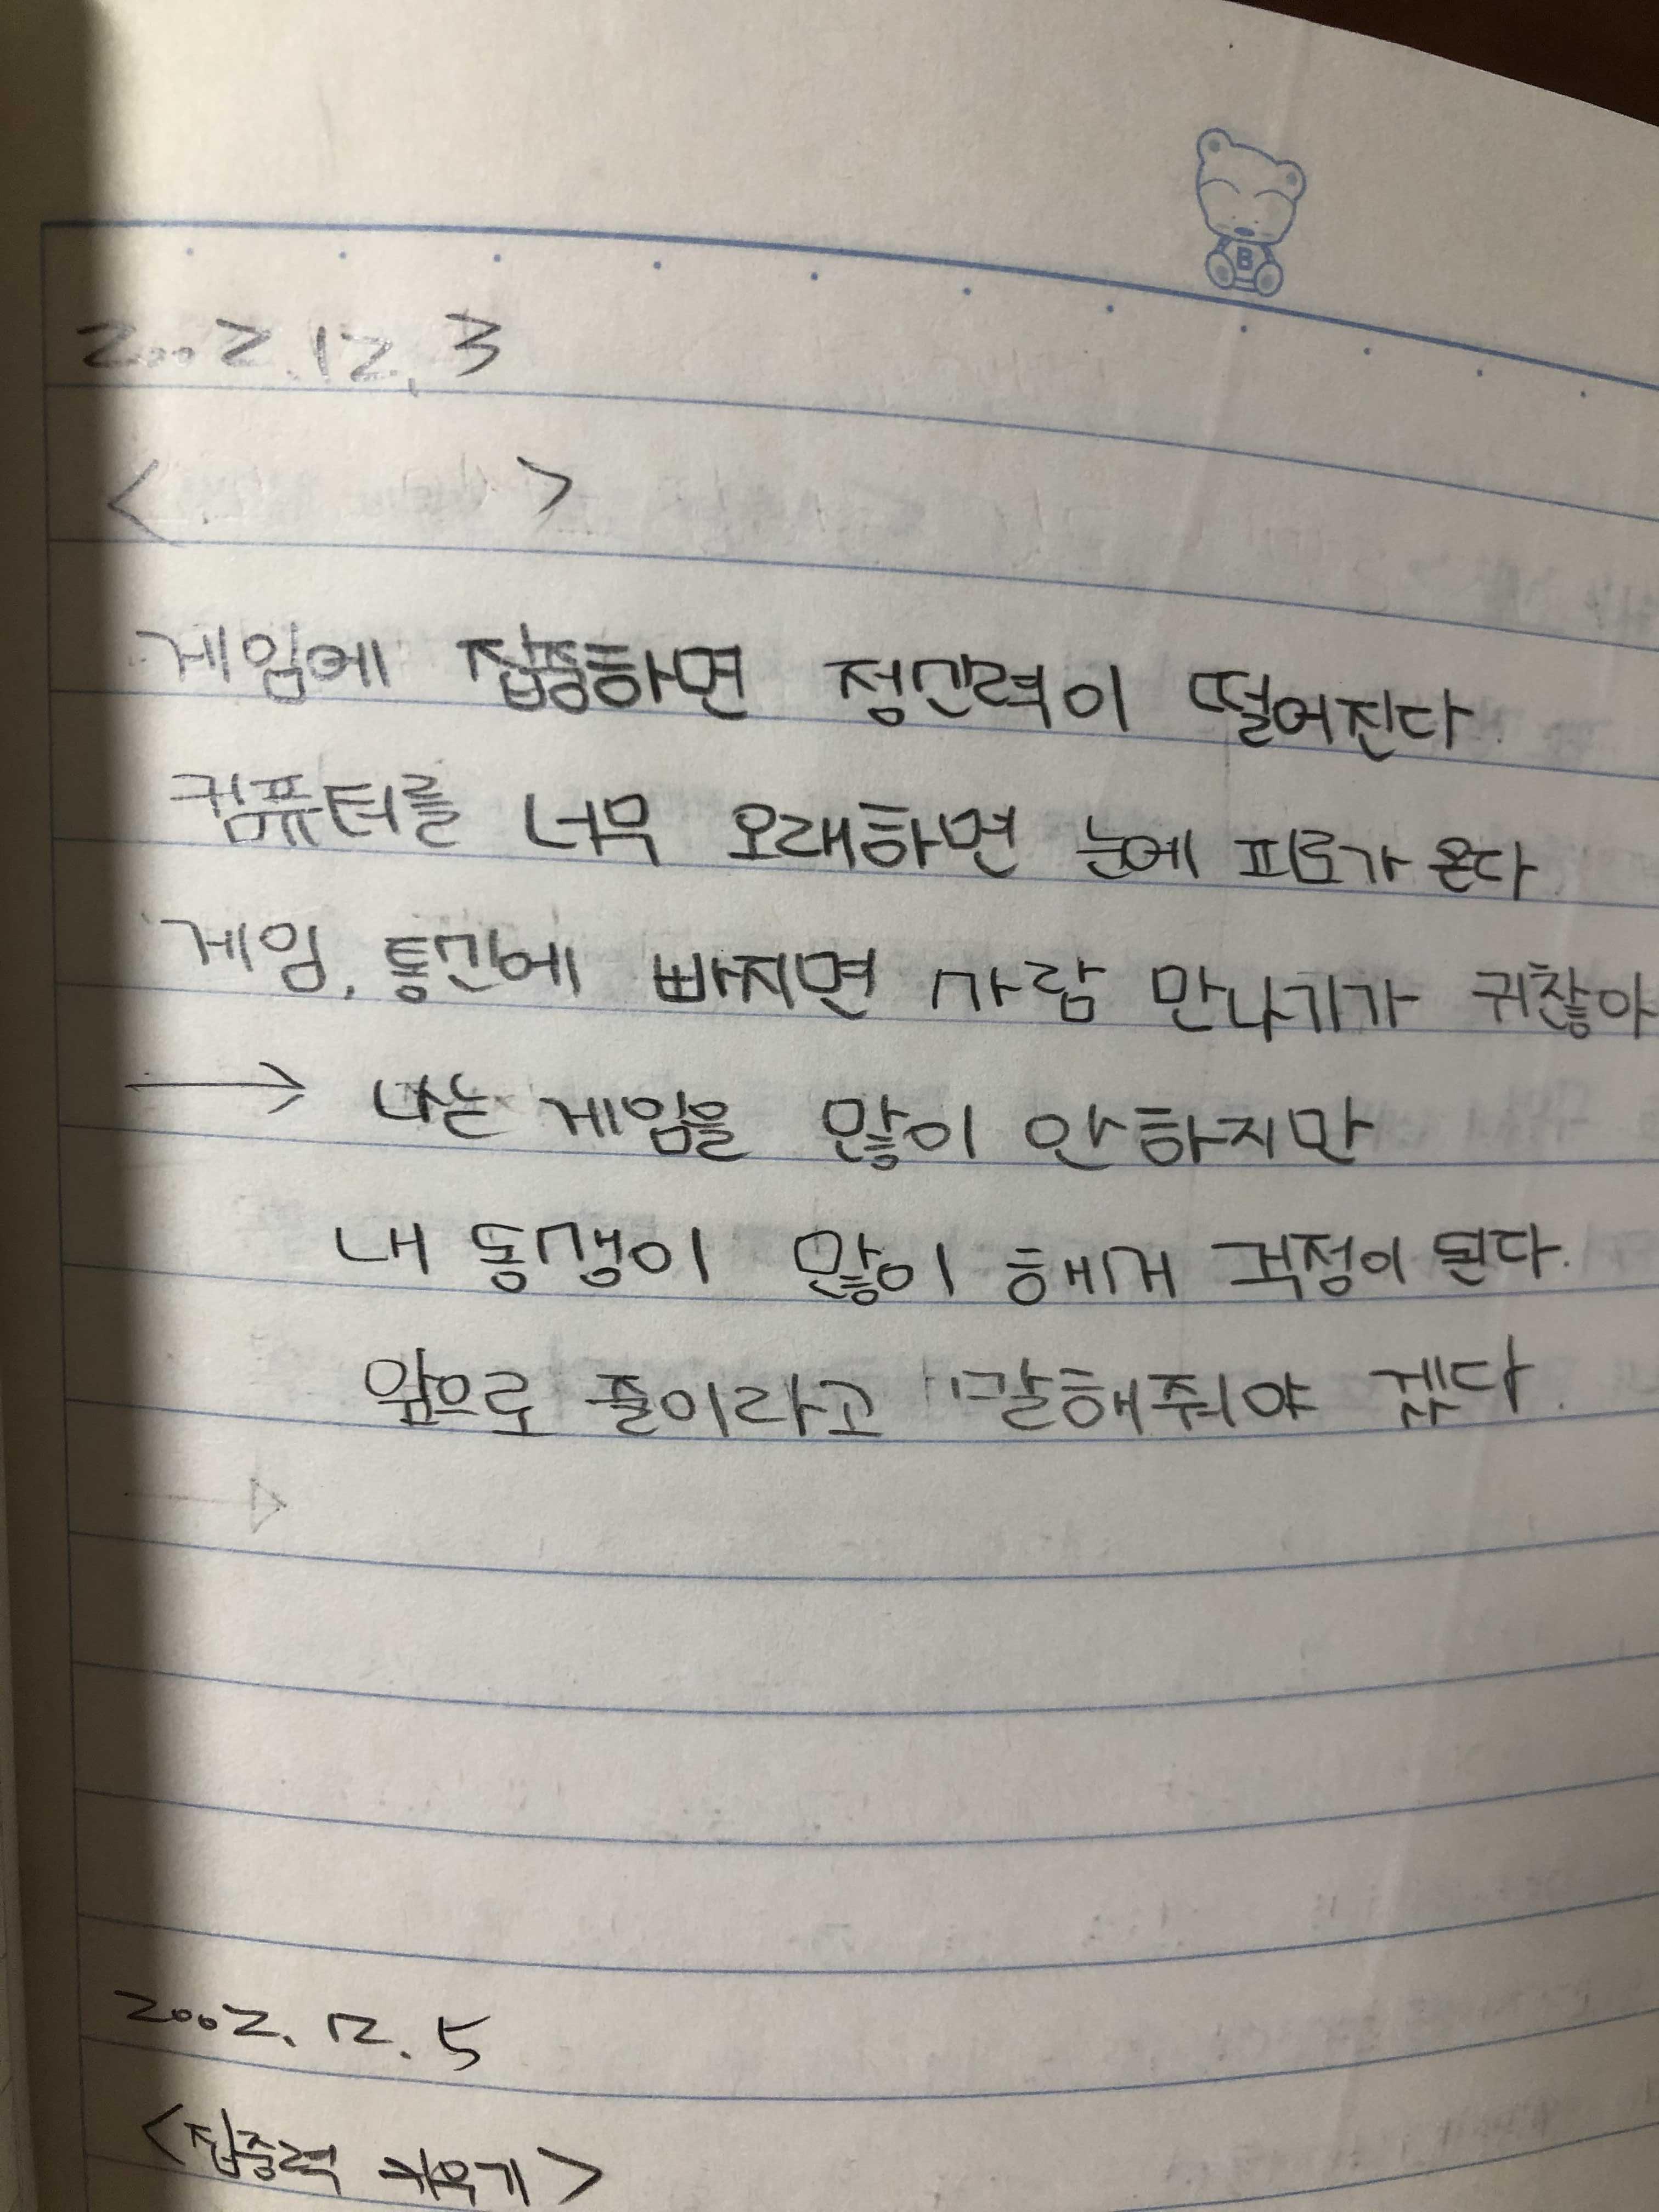 B
2002.12.3
< >
게임에 집중하면 정신력이 떨어진다
컴퓨터를 너무 오래하면 눈에 피로가 온다
게임, 통신에 빠지면 사람 만나기가 귀찮아
→ 나는 게임을 많이 안하지만
내 동생이 많이 해서 걱정이 된다.
앞으로 줄이라고 말해줘야 겠다.
2002. 12. 5
<집중력 키우기>